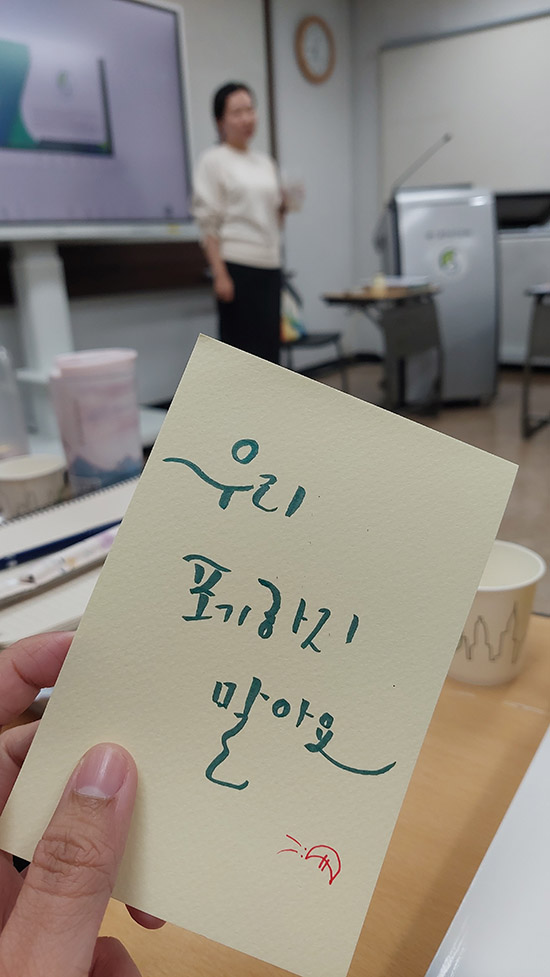 우리
포기하지
말아요